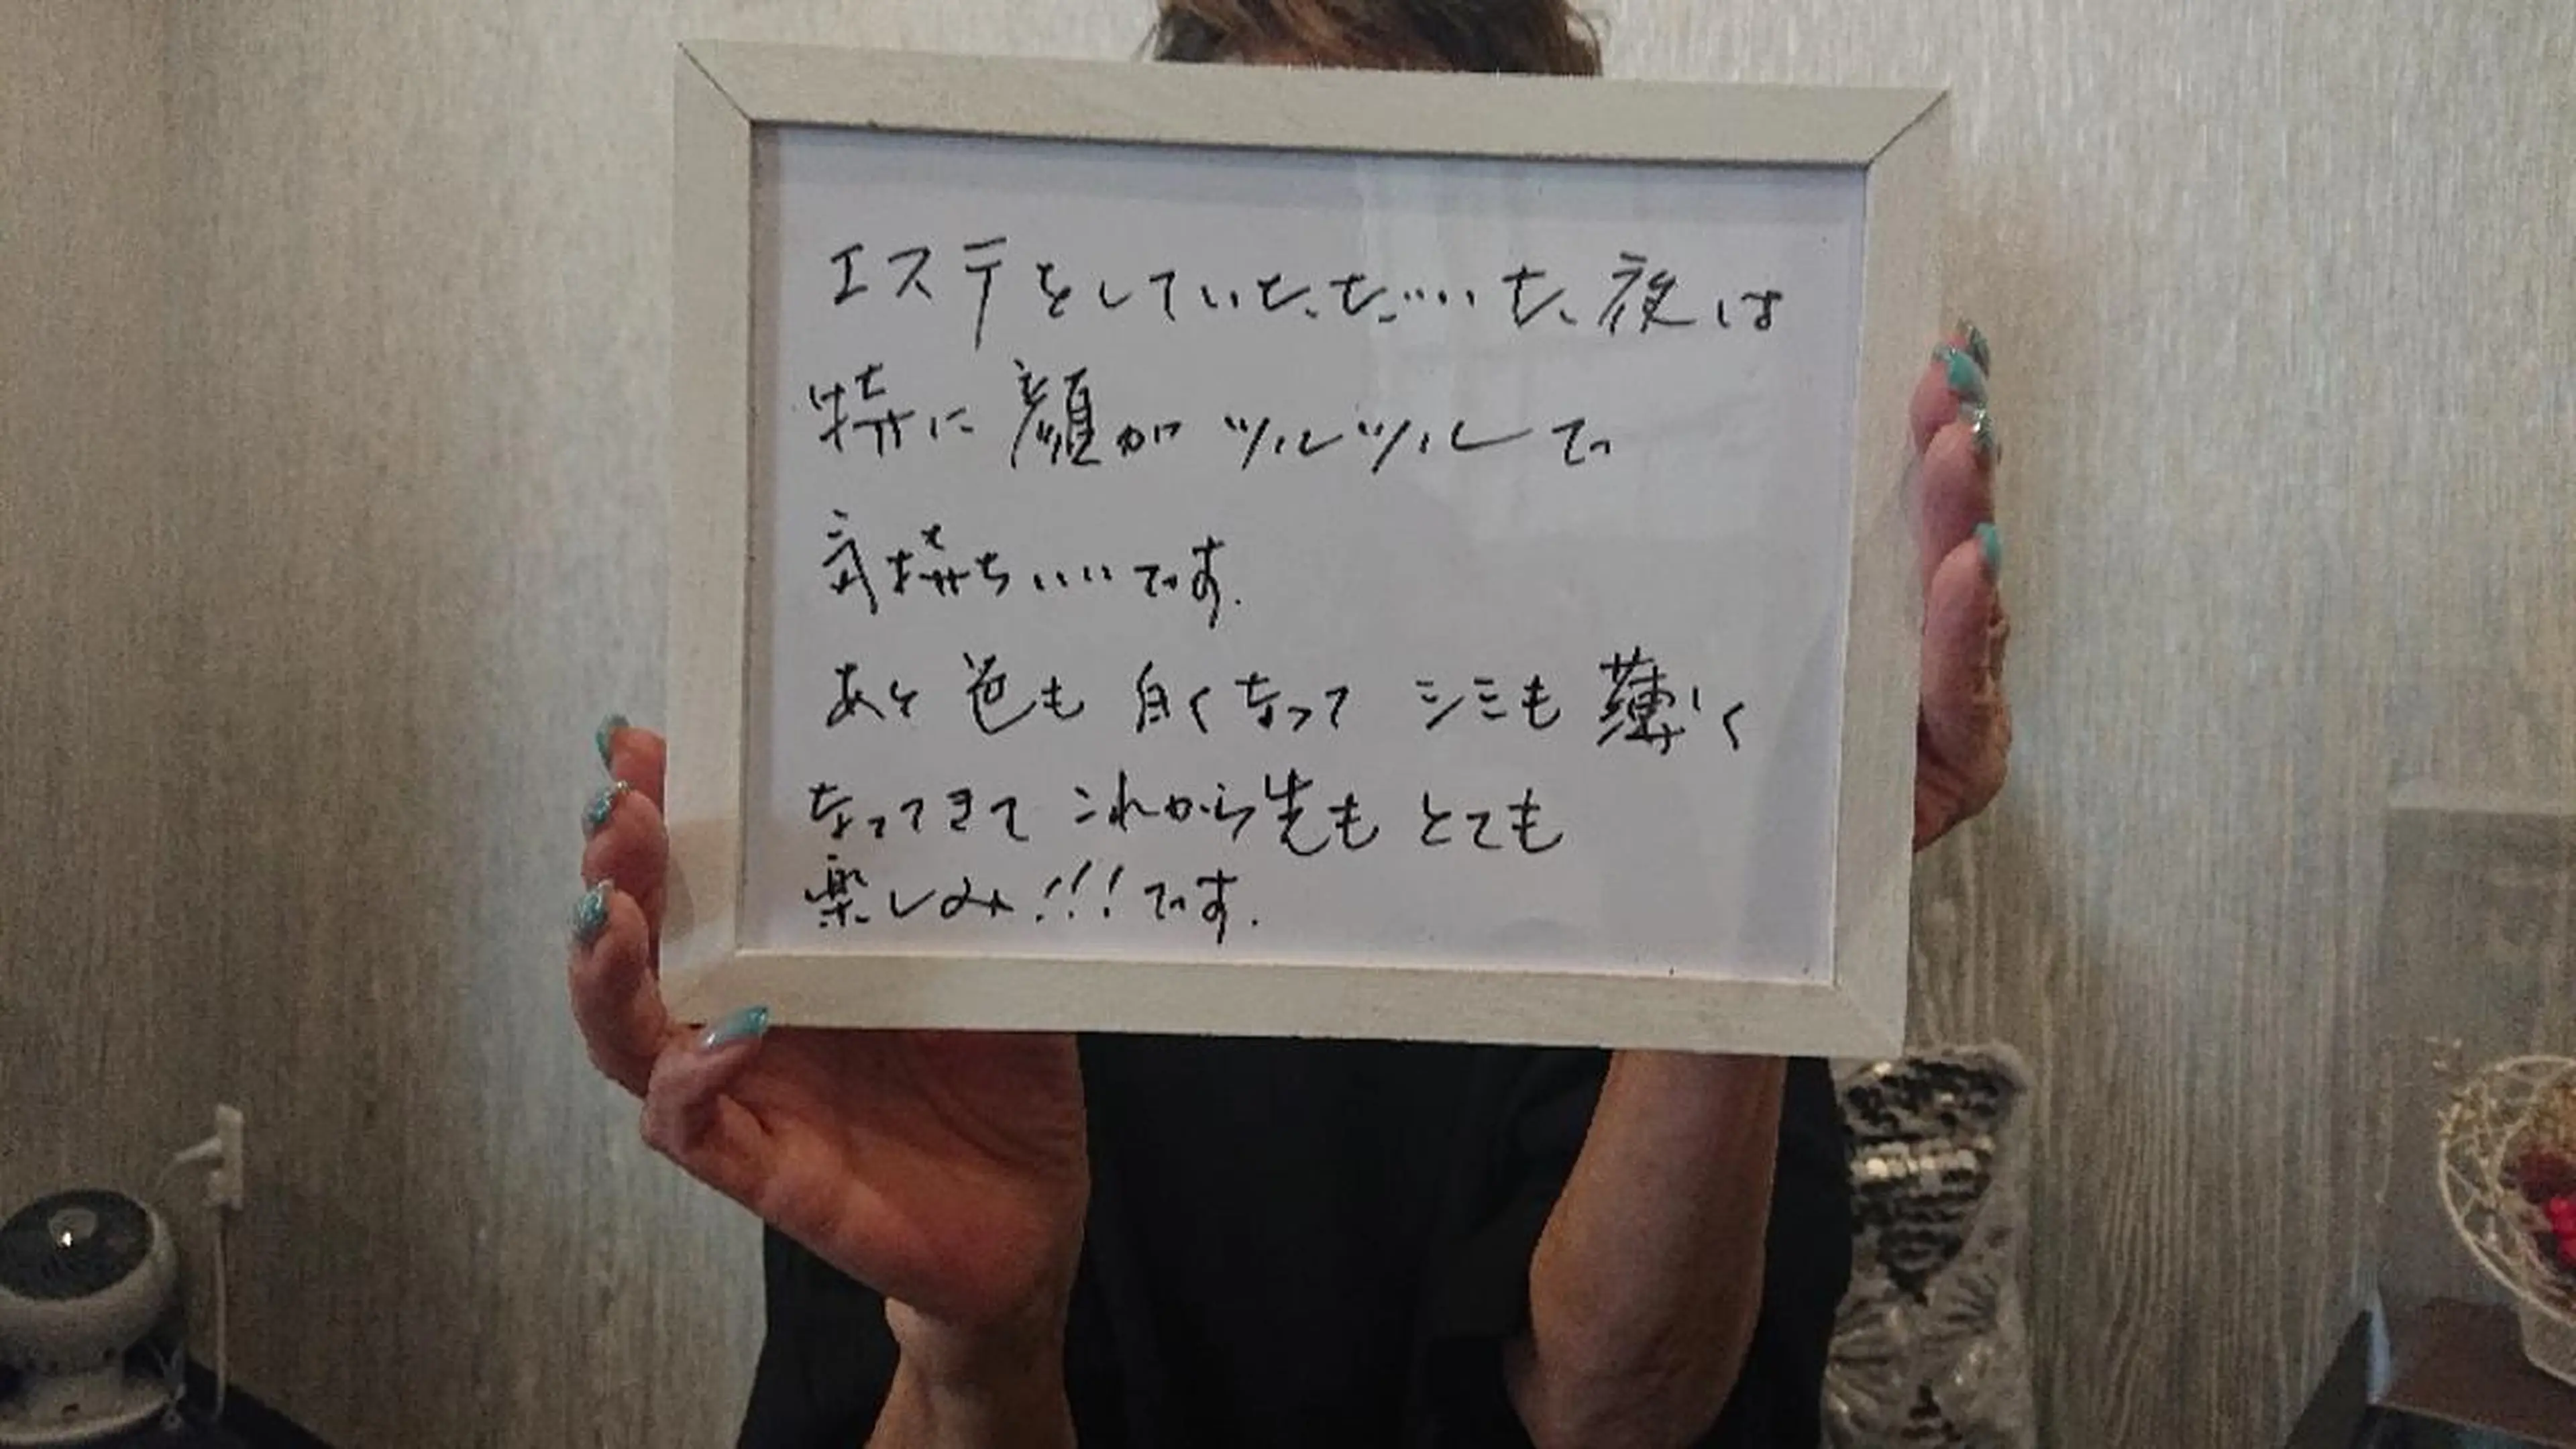 エステをしていただいた夜は
特に顔がツルツルで
気持ちいいです.
あと色も白くなってシミも薄く
なってきてこれから先もとても
楽しみ!!!です.